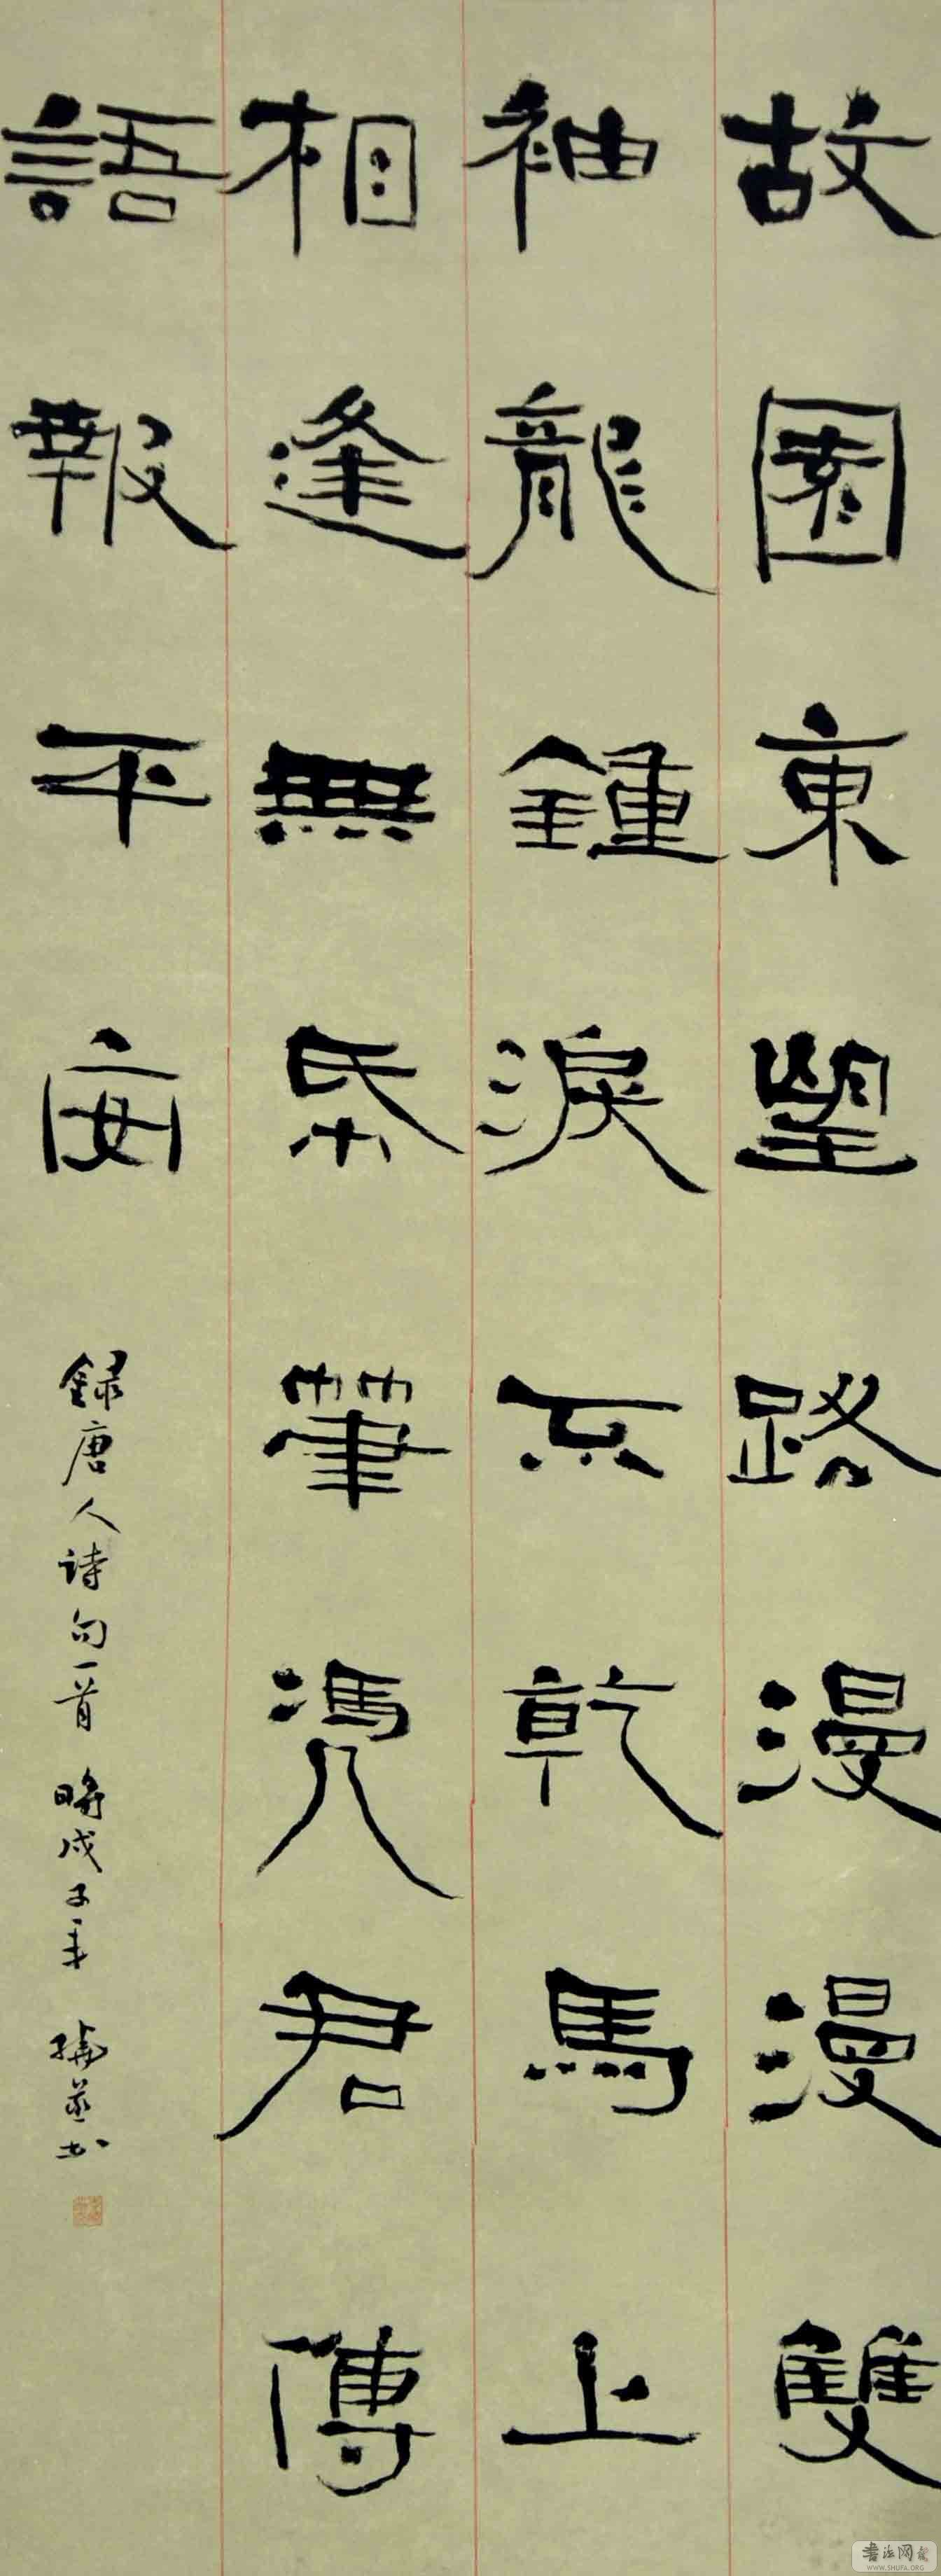 故園東望路漫漫雙
袖龍鍾淚不乾馬上
相逢無帋筆凴君傳
語報平安
錄唐人詩句一首 時戊子年
書法网
WWW.SHUFA.ORG